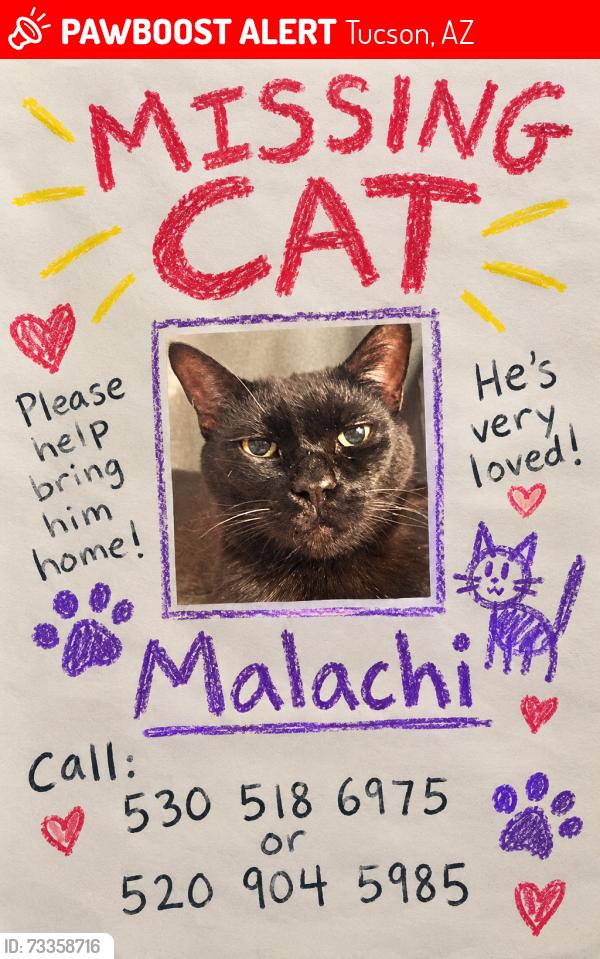 PAWBOOST ALERT Tucson, AZ
MISSING
CAT
Please
help
bring
him
home!
He's
very
loved!
Malachi
Call:
530 518 6975
or
520 904 5985
ID: 73358716